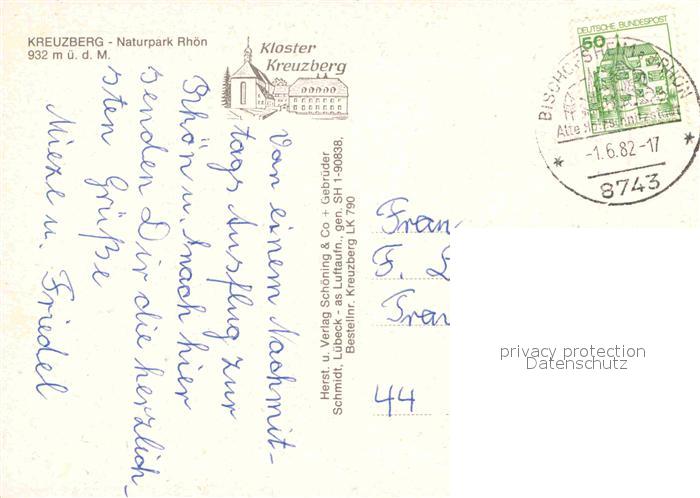 KREUZBERG - Naturpark Rhön
932 m ü. d. M.
Kloster
Kreuzberg
Von einem Nachmit-
tags Ausflug zur
Rhön u. nach hier
senden Dir die herzlich-
sten Grüße
Mieze u. Friedel
Herst. u. Verlag Schöning & Co + Gebrüder
Schmidt, Lübeck - as Luftaufn., gen. SH 1-90838,
Bestellnr. Kreuzberg LK 790
DEUTSCHE BUNDESPOST
50
BISCHOFSHEIM a. d. RHÖN
Alte Holzschnitzstadt
-1.6.82-17
8743
Frau
F.
Fran
44
privacy protection
Datenschutz